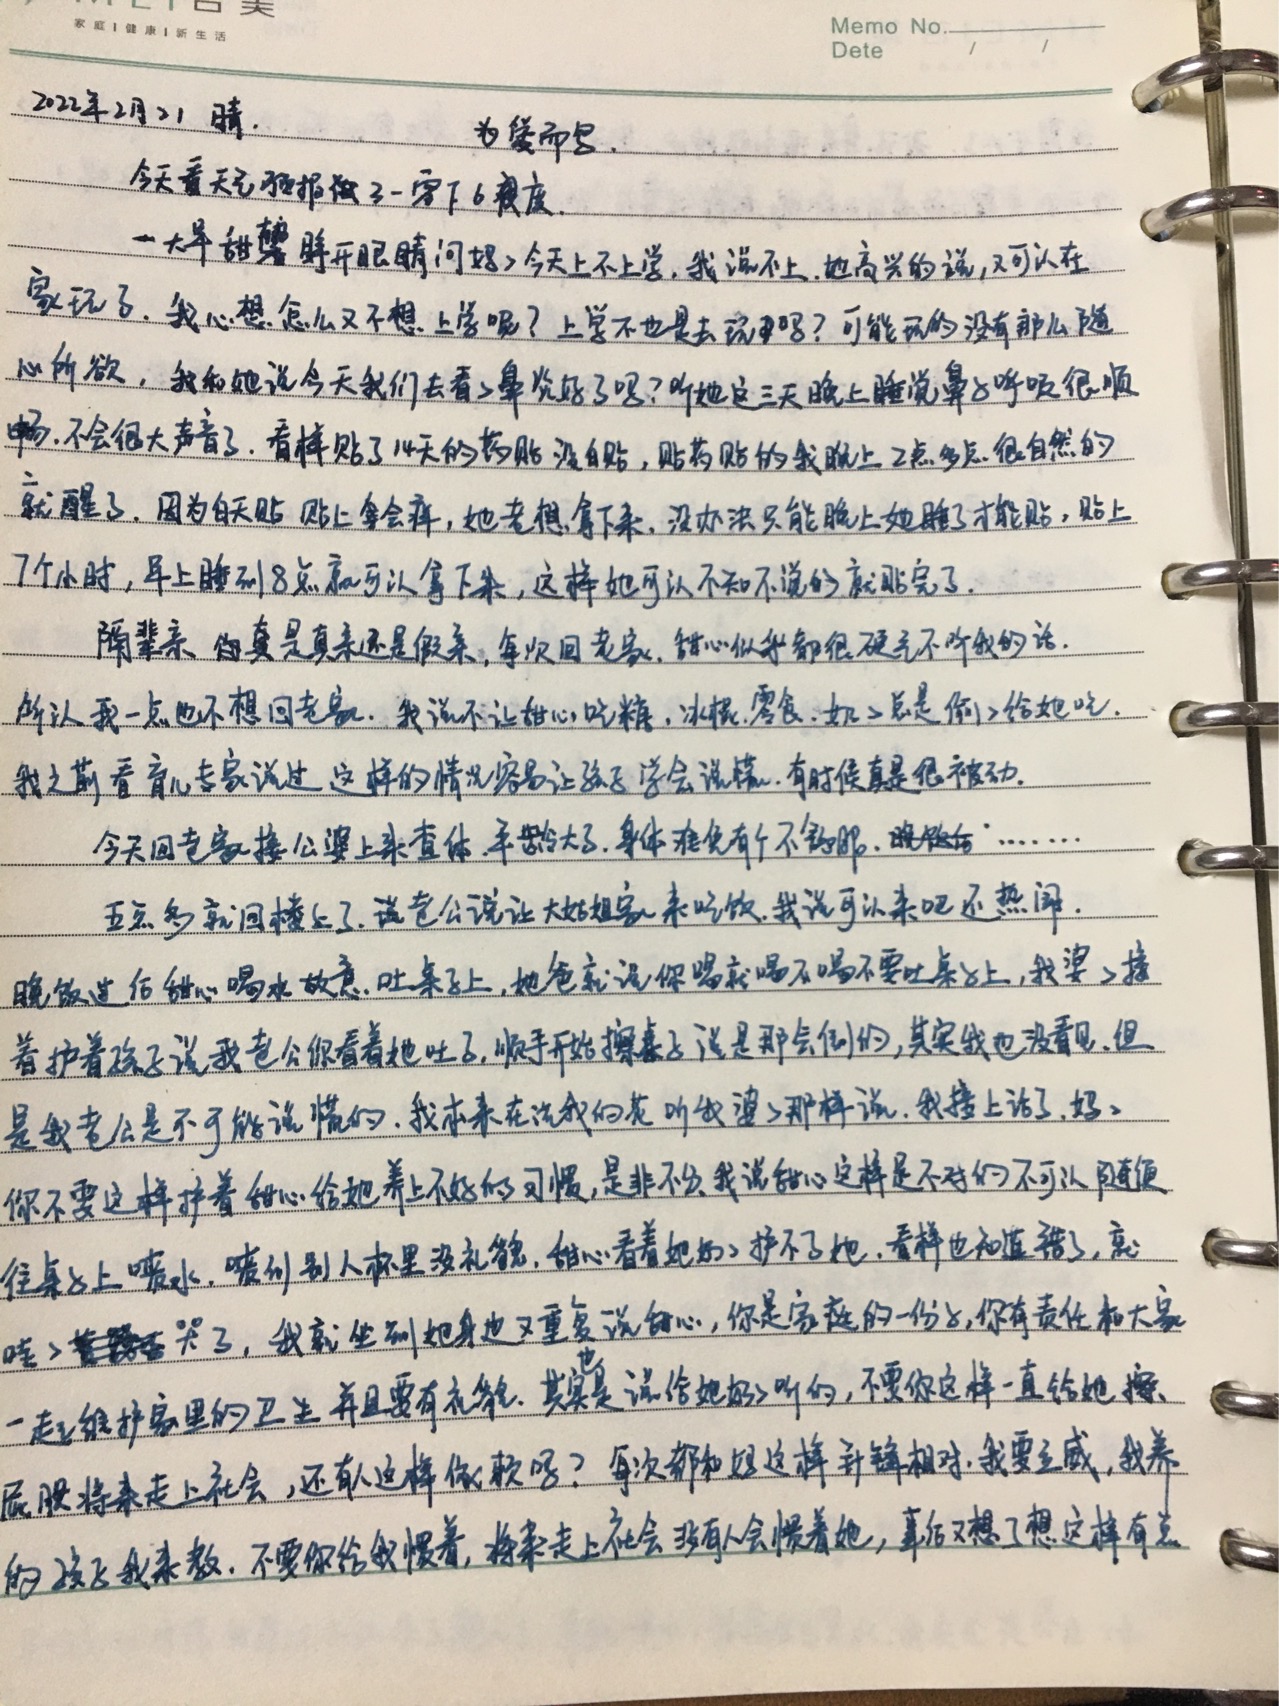 MEI 合美
家庭 | 健康 | 新生活
Memo No.
Dete / /
2022年2月21 晴.
为爱而写.
今天看天气预报做了一零下6度.
一大早甜馨睁开眼睛问妈〻今天上不上学,我说不上.她高兴的说,又可以在
家玩了.我心想怎么又不想上学呢?上学不也是去玩吗?可能玩的没有那么随
心所欲,我和她说今天我们去看〻鼻炎好了吗?听她这三天晚上睡觉鼻子呼吸很顺
畅.不会很大声音了.看样贴了14天的药贴没白贴,贴药贴的我晚上2点多点很自然的
就醒了.因为白天贴 贴上会痒,她老想拿下来.没办法只能晚上她睡了才能贴,贴上
7个小时,早上睡到8点就可以拿下来,这样她可以不知不觉的就贴完了.
隔辈亲 真是真亲还是假亲,每次回老家.甜心似乎都很硬气不听我的话.
所认我一点也不想回老家.我说不让甜心吃糖,冰棍.零食.奶〻总是偷〻给她吃.
我之前看育儿专家说过 这样的情况容易让孩子学会说慌.有时候真是很被动.
今天回老家接公婆上来查体.年龄大了.身体难免有个不舒服. .......
五点多就回楼上了.说老公说让大姑姐家来吃饭.我说可以来吧还热闹.
晚饭过后甜心喝水故意.吐桌子上,她爸就说你喝就喝不喝不要吐桌子上,我婆〻接
着护着孩子说我老公你看着她吐了,顺手开始擦桌子说是那会倒的,其实我也没看见.但
是我老公是不可能说慌的.我本来在洗我的花听我婆〻那样说.我接上话了.妈〻
你不要这样护着甜心给她养上不好的习惯,是非不分.我说甜心这样是不对的不可以随便
往桌子上喷水.喷到别人杯里没礼貌.甜心看着她奶〻护不了她.看样也知道错了,就
哇〻哭了,我就坐到她身边又重复说甜心,你是家庭的一份子,你有责任和大家
一起维护家里的卫生 并且要有礼貌.其实也是说给她奶〻听的,不要你这样一直给她擦
屁股将来走上社会,还有人这样做呢吗?每次都和妈这样针锋相对.我要立威,我养
的孩子我来教.不要你给我惯着,将来走上社会没有人会惯着她,事后又想了想这样有点